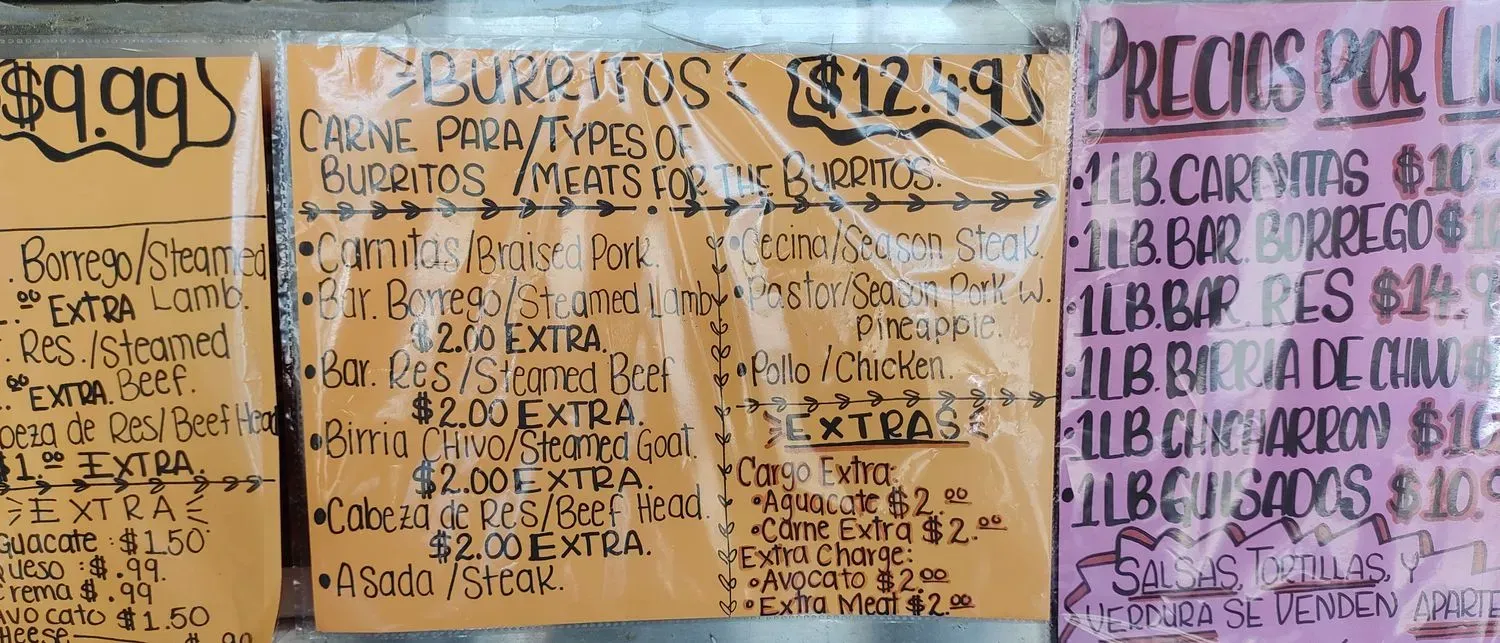 $9.99
Borrego/Steamed
EXTRA Lamb.
Res./Steamed
.00 EXTRA. Beef.
de Res/Beef Head
$1.00 EXTRA.
EXTRA
$1.50
$.99.
$.99
$1.50
BURRITOS
$12.49
CARNE PARA/TYPES OF
BURRITOS /MEATS FOR THE BURRITOS.
•Carnitas/Braised Pork.
•Bar. Borrego/Steamed Lamb
$2.00 EXTRA.
•Bar. Res /Steamed Beef
$2.00 EXTRA.
•Birria CHIVO/Steamed Goat.
$2.00 EXTRA.
•Cabeza de Res/Beef Head.
$2.00 EXTRA.
•Asada /Steak.
•Cecina/Season Steak.
•Pastor/Season Pork w.
Pineapple.
•Pollo /Chicken.
EXTRAS
Cargo Extra:
•Aguacate $2.00
•Carne Extra $2.00
Extra Charge:
•Avocato $2.00
•Extra Meat $2.00
PRECIOS POR
•1LB. CARNITAS
•1LB. BAR. BORREGO
•1LB. BAR. RES
•1LB. BIRRIA DE CHIVO
•1LB CHICHARRON
•1LB GUISADOS
SALSAS, TORTILLAS, Y
VERDURA SE VENDEN APARTE